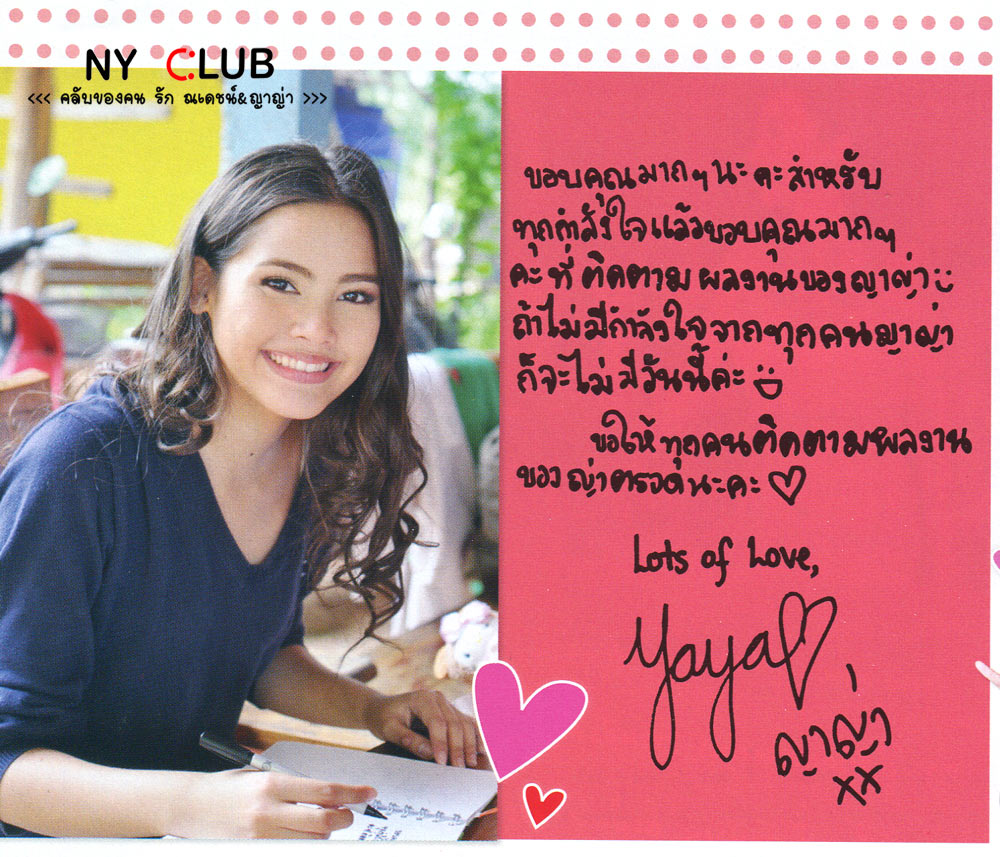 NY CLUB
<<< คลับของคน รัก ณเดชน์&ญาญ่า >>>
ขอบคุณมากๆนะคะสำหรับ
ทุกกำลังใจแล้วขอบคุณมากๆ
คะที่ติดตามผลงานของญาญ่า
ถ้าไม่มีกำลังใจจากทุกคนญาญ่า
ก็จะไม่มีวันนี้ค่ะ
ขอให้ทุกคนติดตามผลงาน
ของญ่าตรอดนะคะ
Lots of Love,
Yaya
ญาญ่า
xx